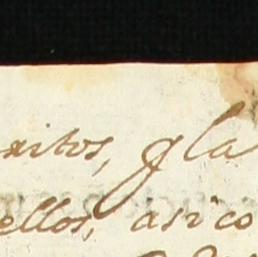 xitos, q la
ellos, asico